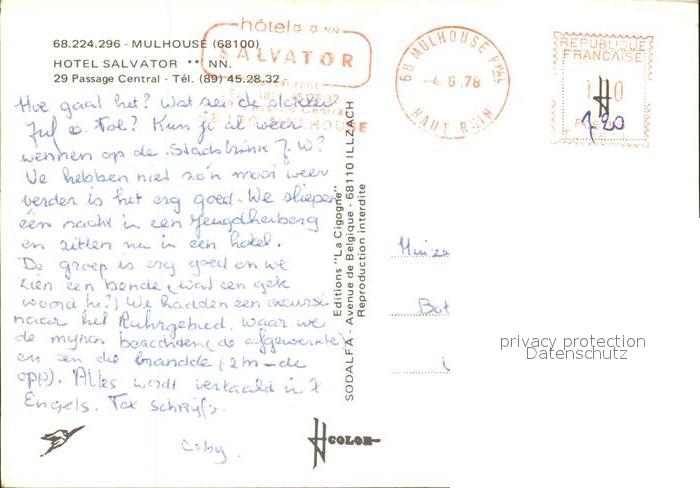 68.224.296 - MULHOUSE (68100)
HOTEL SALVATOR ** NN.
29 Passage Central - Tél. (89) 45.28.32
hôtel NN
SALVATOR
68 MULHOUSE PPAL
-4. 8. 78
HAUT RHIN
REPUBLIQUE
FRANCAISE
POSTES
120
Hoe gaat het? Wat zei de dokter
Juf Tol? Kun je al weer
wennen op de Stadstimk J.W?
We hebben niet zo'n mooi weer
verder is het erg goed. We sliepen
één nacht in een jeugdherberg
en zitten nu in een hotel.
De groep is erg goed en we
zien een bende (wat een gek
woord he?) We hadden een excursie
naar het Ruhrgebied, waar we
de mijnen bezochten (de afgewerkte)
en een die brandde (2m de
opp). Alles wordt vertaald in 't
Engels. Tot schrijfs.
Coby.
Editions "La Cigogne"
SODALFA - Avenue de Belgique - 68110 ILLZACH
Reproduction interdite
COLOR
privacy protection
Datenschutz